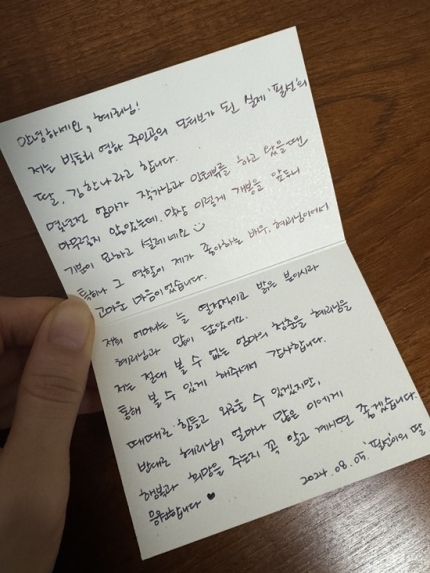 안녕하세요, 혜리님!
저는 빅토리 영화 주인공의 모티브가 된 실제 '필선'의
딸, 김한나라고 합니다.
몇년전 엄마가 작가님과 인터뷰를 하고 왔을 땐
아무렇지 않았는데, 막상 이렇게 개봉을 앞두니
기분이 묘하고 설레네요
특히나 그 역할이 제가 좋아하는 배우, 혜리님이어서
고마운 마음이었습니다.
저희 어머니는 늘 열정적이고 밝은 분이시라
혜리님과 많이 닮았어요.
저는 절대 볼 수 없는 엄마의 청춘을 혜리님을
통해 볼 수 있게 해주셔서 감사합니다.
때때로 힘들고 외로울 수 있겠지만,
반대로 혜리님이 얼마나 많은 이에게
행복과 희망을 주는지 꼭 알고 계시면 좋겠습니다.
응원합니다 ♥
2024. 08. 05. '필선'이의 딸